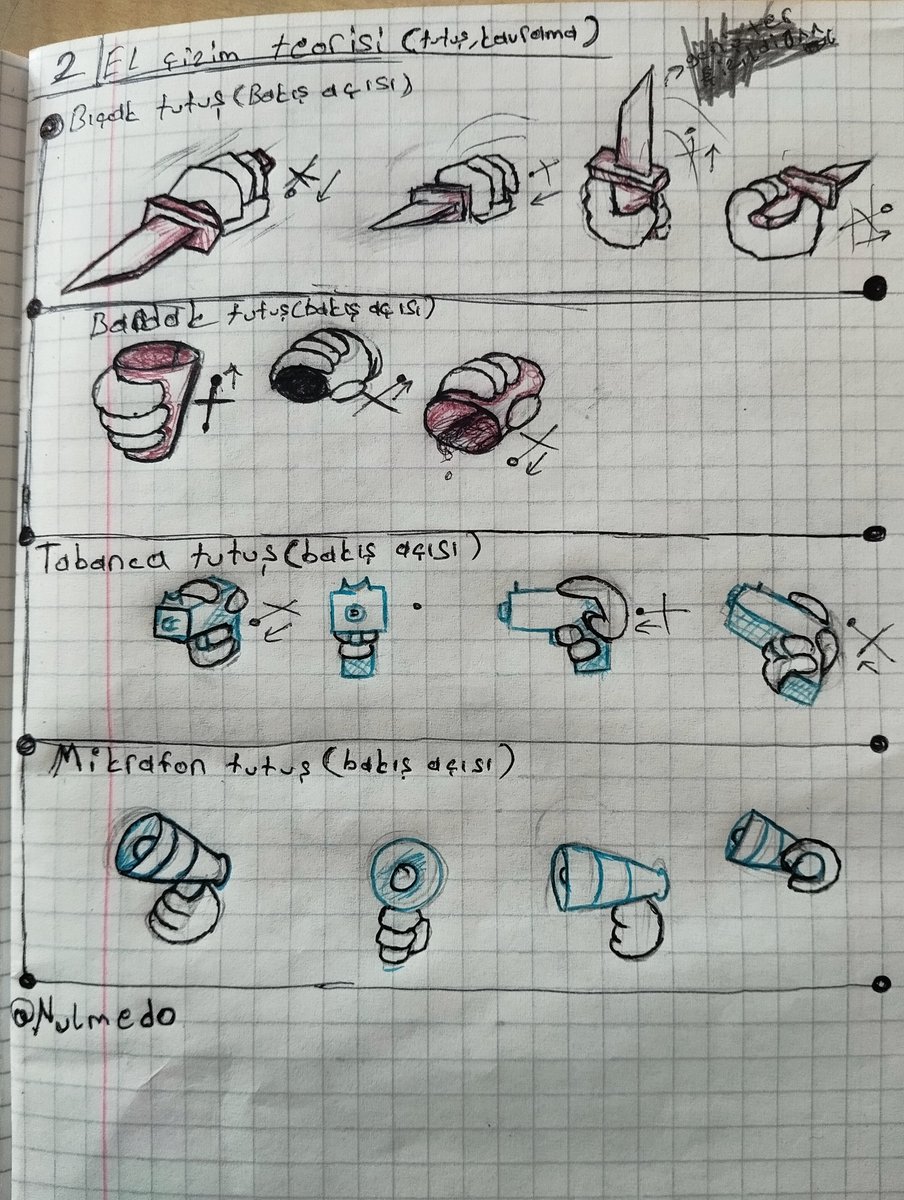 2 El çizim teorisi (tutuş, kavrama)
Bıçak tutuş (Bakış açısı)
Bardak tutuş (bakış açısı)
Tabanca tutuş (bakış açısı)
Mikrafon tutuş (bakış açısı)
@Nulmedo